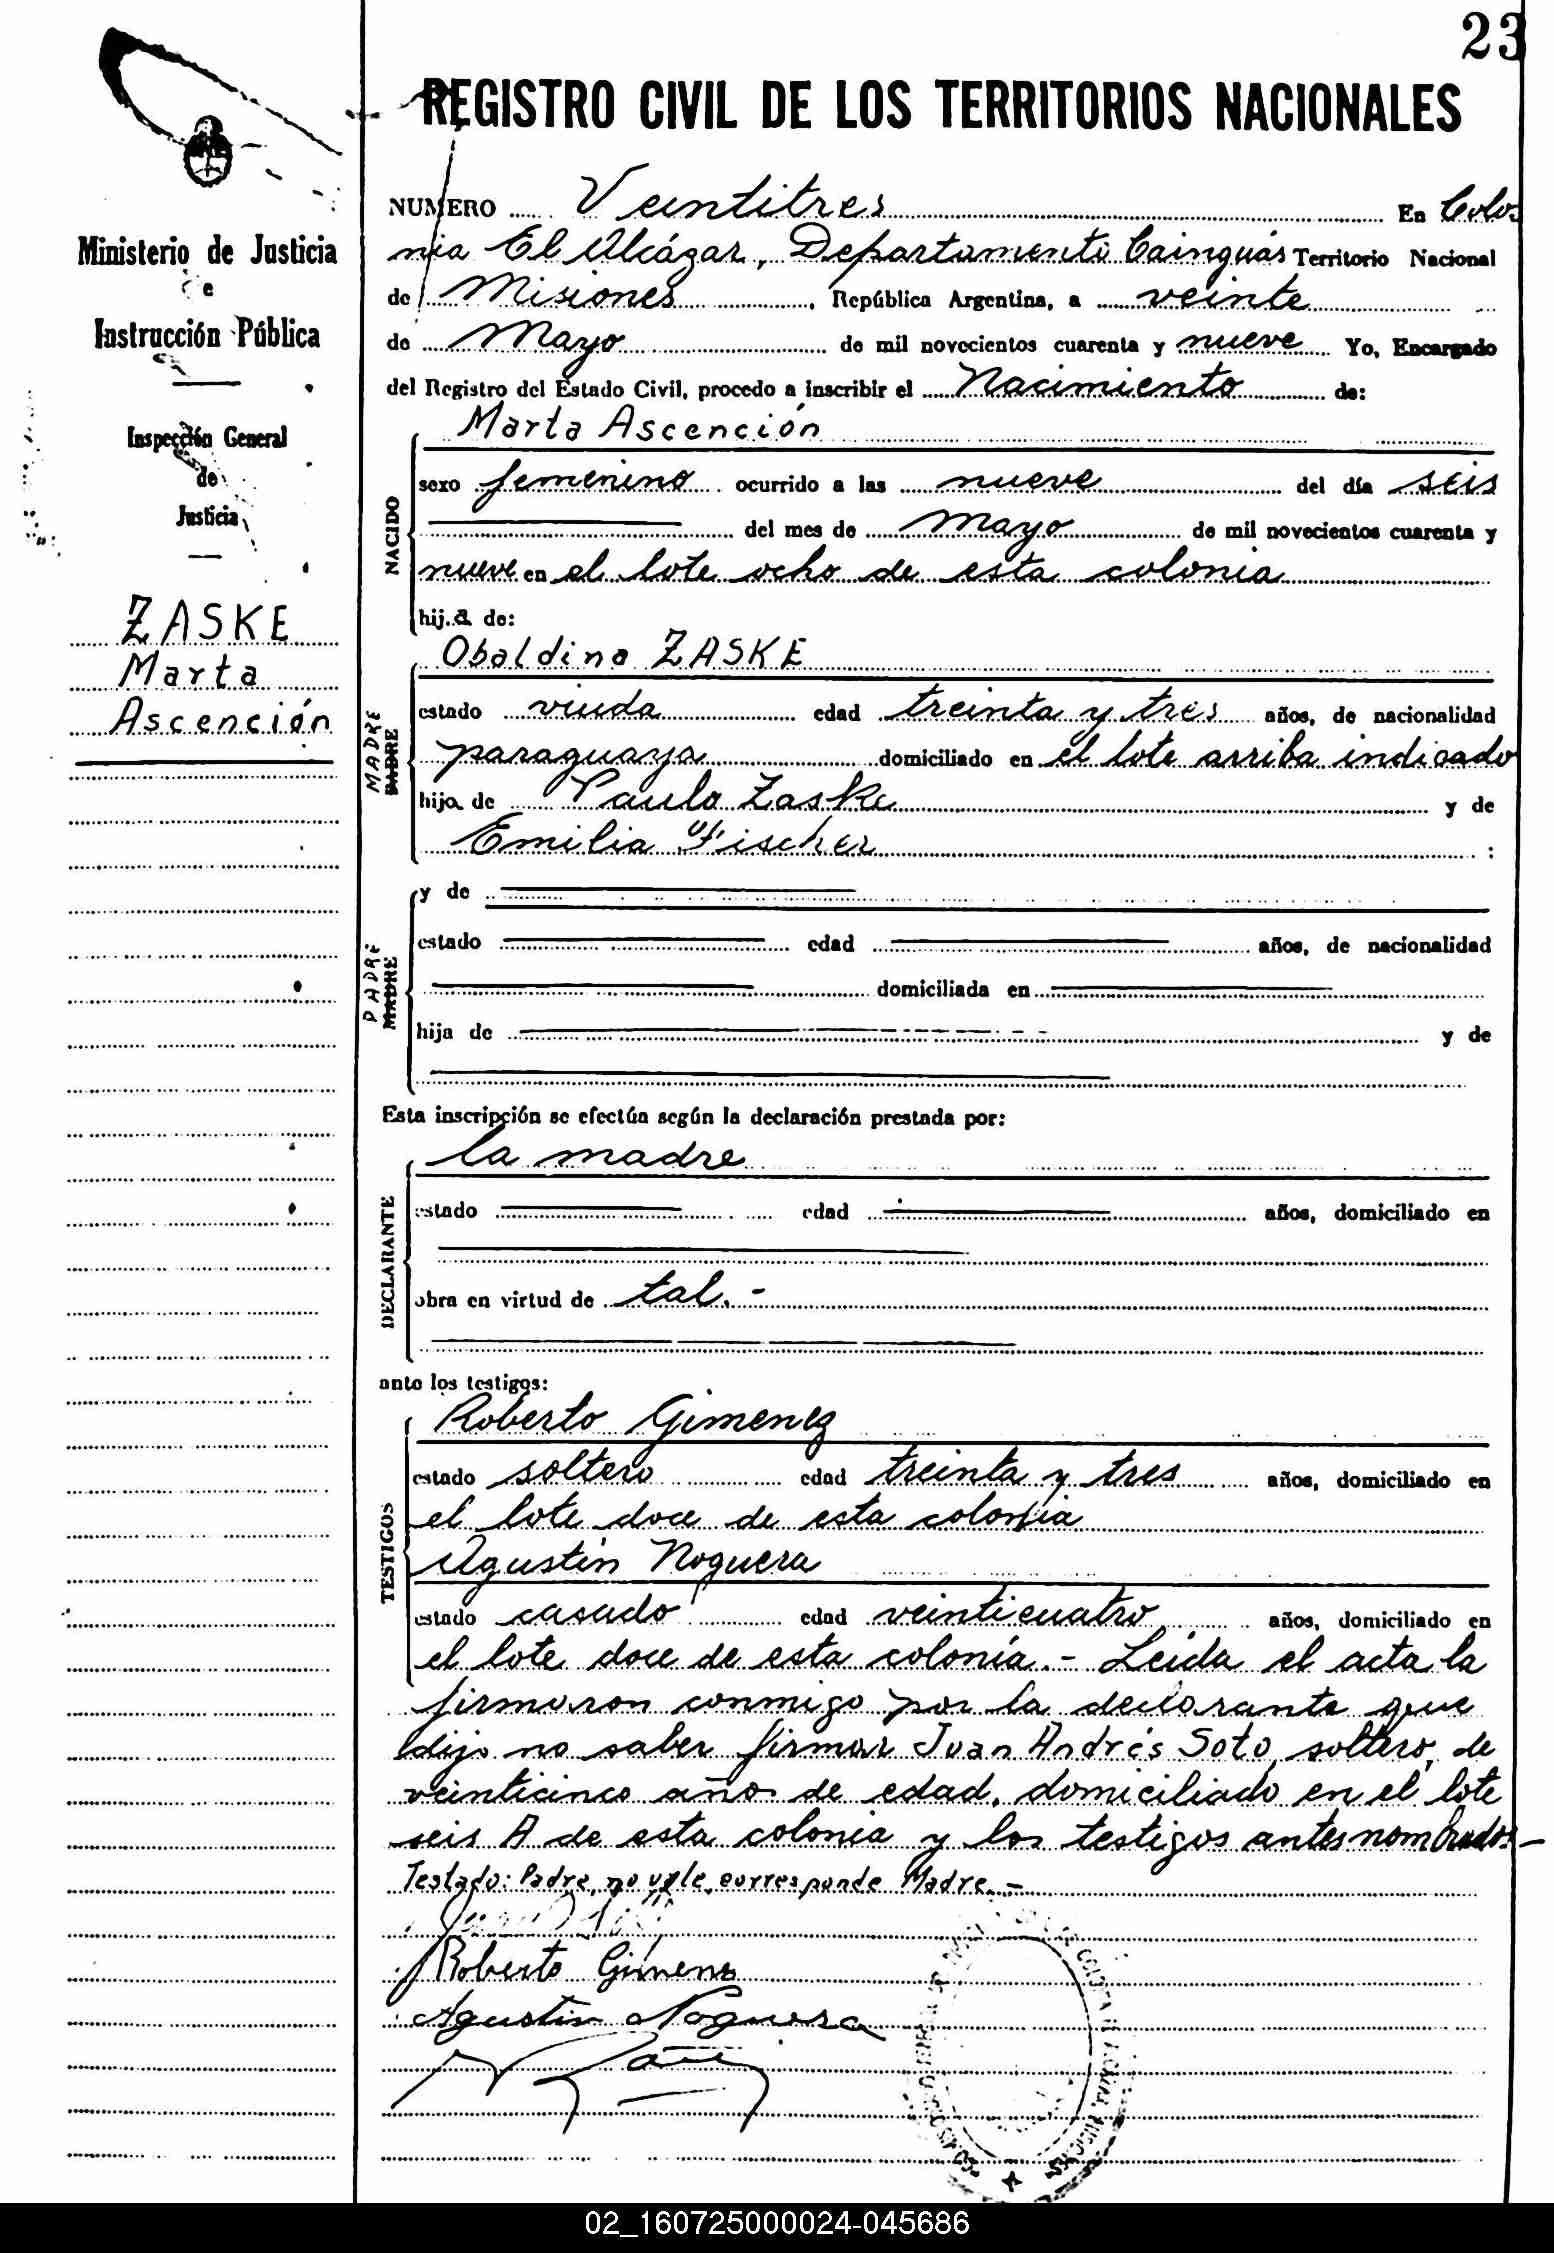 23
REGISTRO CIVIL DE LOS TERRITORIOS NACIONALES
Ministerio de Justicia
e
Instrucción Pública
Inspección General
de
Justicia
ZASKE
Marta
Ascención
NUMERO Veintitres En Colo
nia El Alcázar, Departamento Cainguás Territorio Nacional
de Misiones, República Argentina, a veinte
de Mayo de mil novecientos cuarenta y nueve Yo, Encargado
del Registro del Estado Civil, procedo a inscribir el Nacimiento de:
NACIDO
Marta Ascención
sexo femenino ocurrido a las nueve del día seis
del mes de mayo de mil novecientos cuarenta y
nueve en el lote ocho de esta colonia
hij.a de:
MADRE
PADRE
Obaldina ZASKE
estado viuda edad treinta y tres años, de nacionalidad
paraguaya domiciliado en el lote arriba indicado
hija de Paulo Zaske y de
Emilia Fischer :
PADRE
MADRE
y de
estado edad años, de nacionalidad
domiciliada en
hija de y de
Esta inscripción se efectúa según la declaración prestada por:
DECLARANTE
la madre
estado edad años, domiciliado en
obra en virtud de tal.-
ante los testigos:
TESTIGOS
Roberto Gimenez
estado soltero edad treinta y tres años, domiciliado en
el lote doce de esta colonia
Agustín Noguera
estado casado edad veinticuatro años, domiciliado en
el lote doce de esta colonia.- Leída el acta la
firmaron conmigo por la declarante que
dijo no saber firmar Juan Andrés Soto, soltero, de
veinticinco años de edad, domiciliado en el lote
seis A de esta colonia y los testigos antes nombrados-
Testado: Padre, no vale, corresponde Madre.-
Roberto Gimenez
Agustin Noguera
02_160725000024-045686